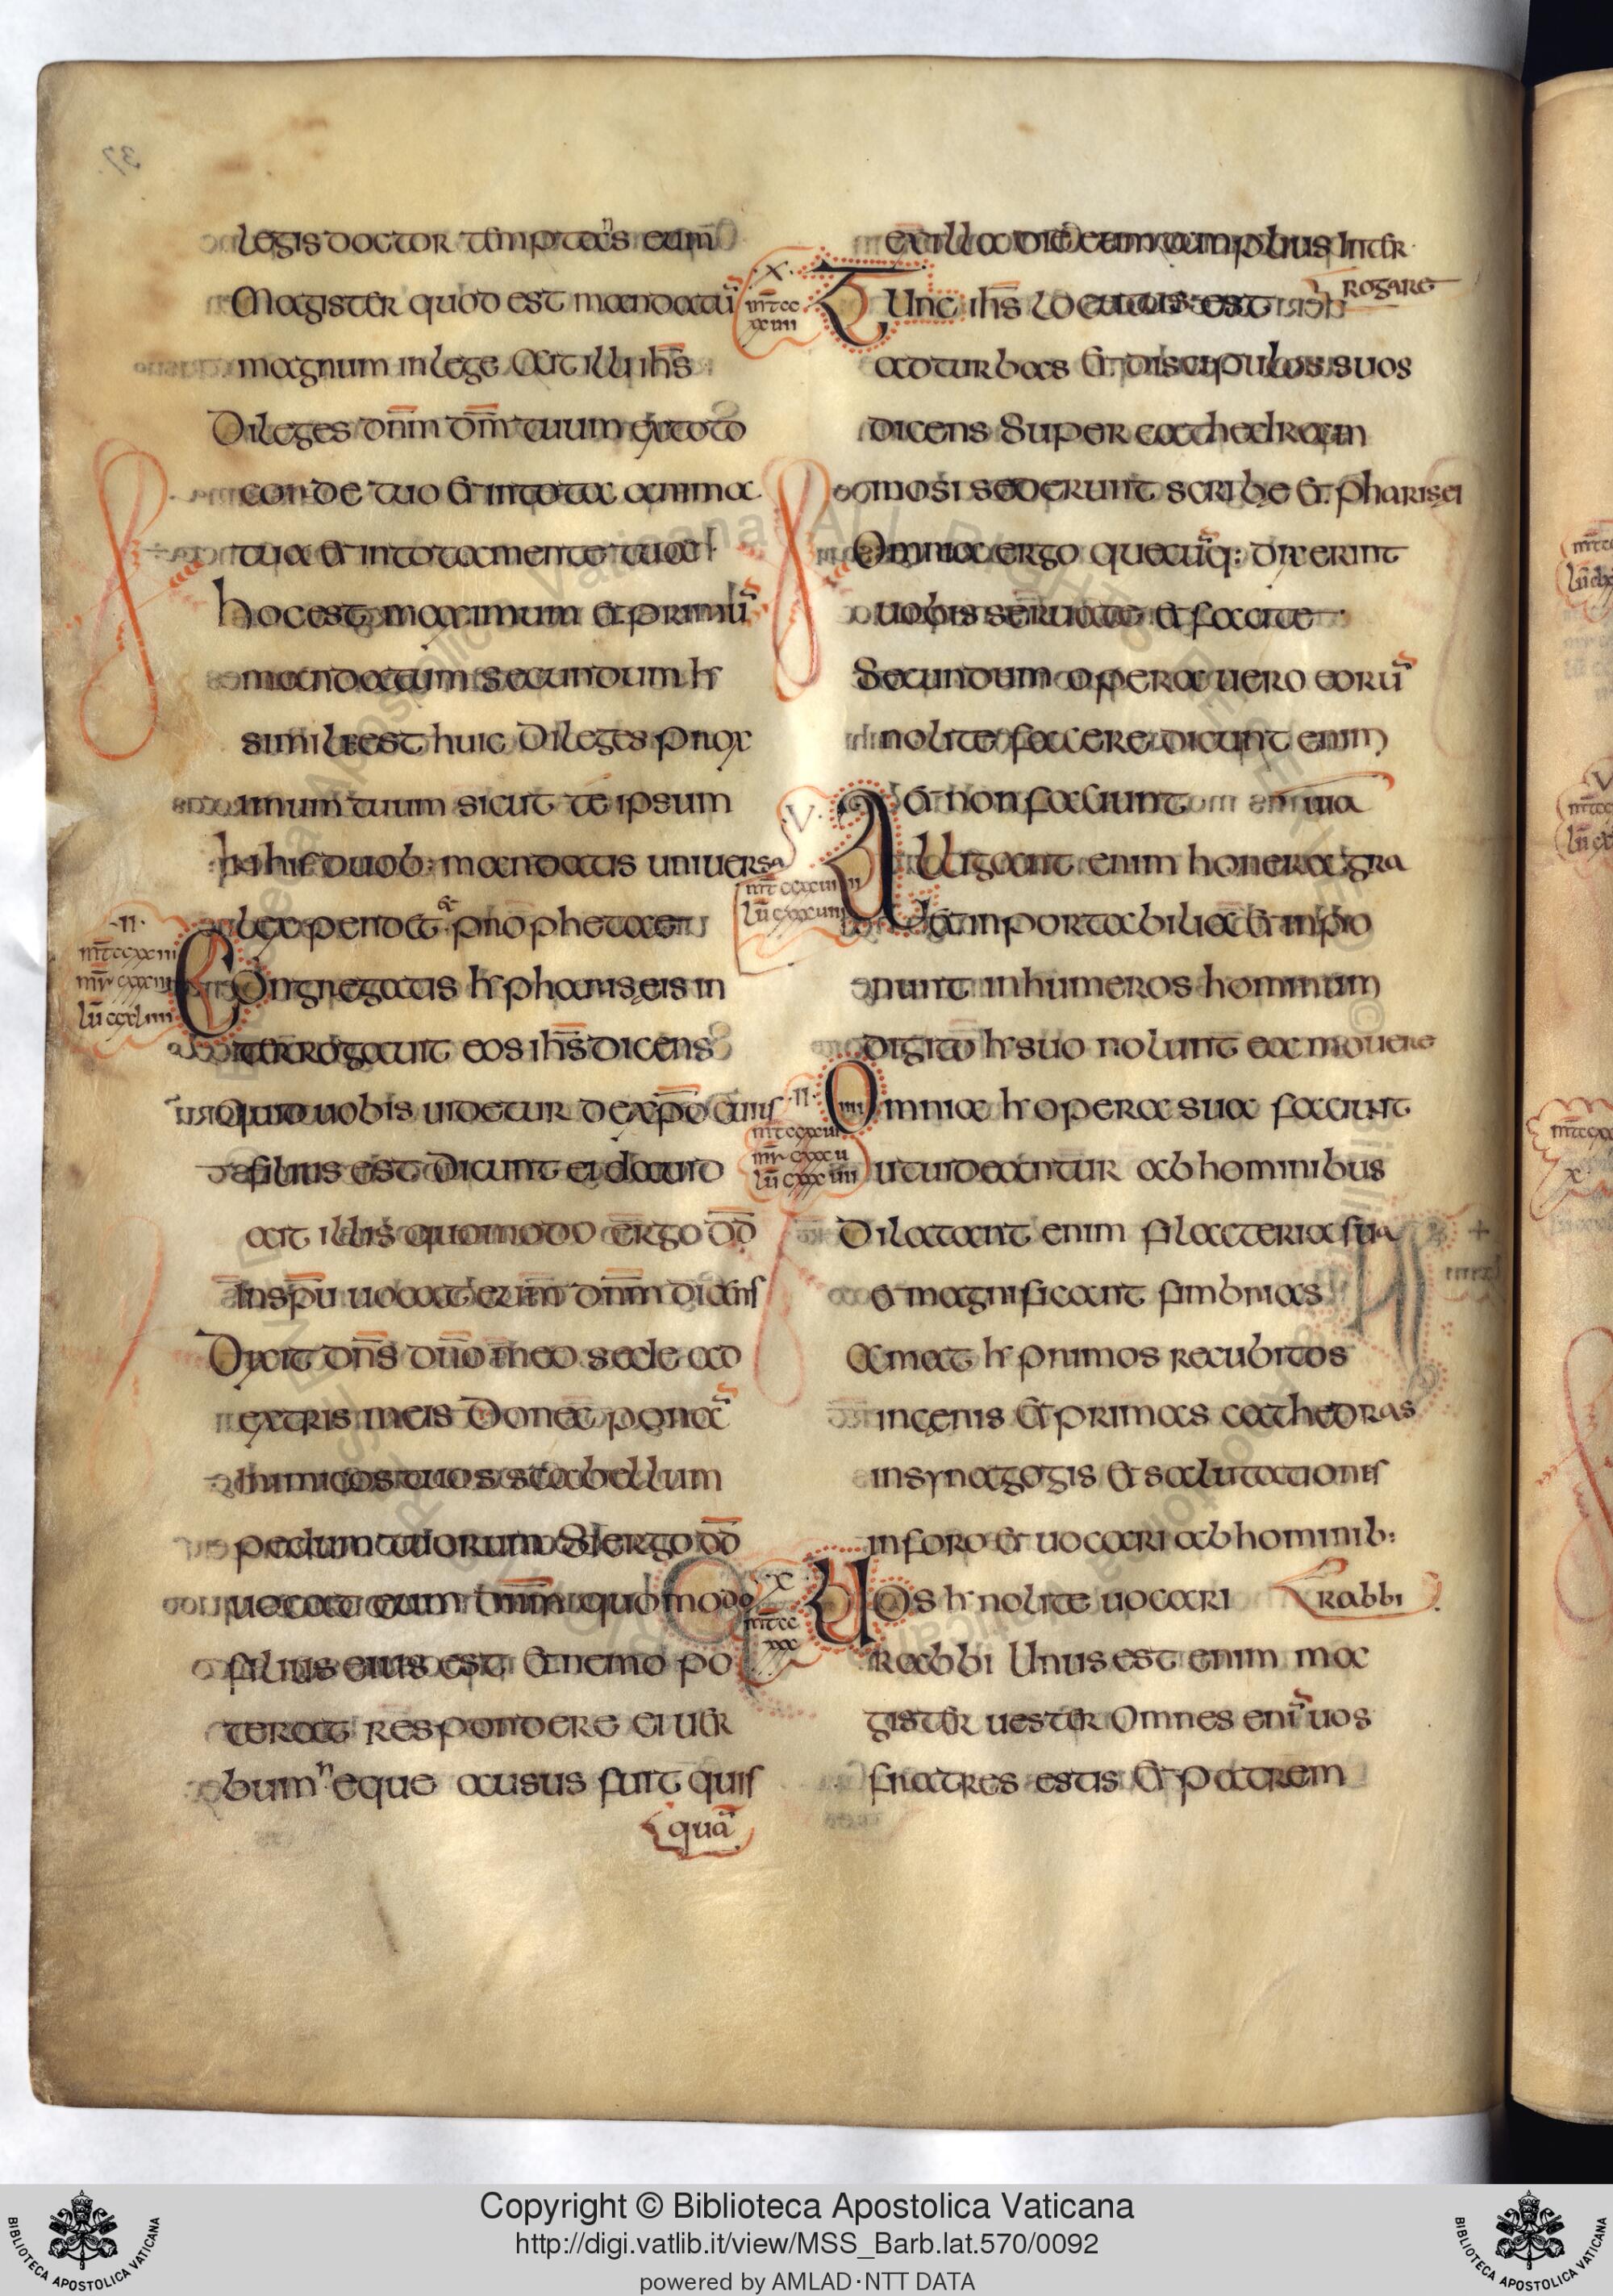 legis doctor temptans eum
Magister quod est mandatū
magnum in lege Ait illi ihs̄
Dileges dn̄m dm̄ tuum ex toto
corde tuo et in tota anima
tua et in tota mente tua
hoc est maximum et primū
mandatum secundum hr
simile est huic Dileges prox
imum tuum sicut te ipsum
In his duob: mandatis universa
lex pendet et prophetae
·II·
Congregatis hr phariseis in
terrogavit eos ihs̄ dicens
Quid uobis uidetur de xp̄o cuius
filius est Dicunt ei dauid
ait illis quomodo ergo dd̄
In spū uocat eum dn̄m dicens
Dixit dn̄s dn̄o meo sede ad
extris meis Donec ponā
Inimicos tuos scabellum
pedum tuorum Si ergo dd̄
uocat eum dn̄m quomodo
filius eius est Et nemo po
terat respondere ei uer
bum neque ausus fuit quis
quā
ex illa die eum amplius inter
rogare
·X·
mt̄ cc
xxiiii
Tunc ihs̄ locutus est
ad turbas et discipulos suos
dicens Super cathedram
mosi sederunt scribe et pharisei
Omnia ergo quecūq: dixerint
uobis seruate et facite
Secundum opera uero eorū
nolite facere dicunt enim
et non faciunt
·V·
Alligant enim honera gra
uia
et inportabilia et inpo
nunt in humeros hominum
digito hr suo nolunt ea mouere
·II·
Omnia hr opera sua faciunt
ut uideantur ab hominibus
Dilatant enim filacteria sua
et magnificant fimbrias
Amat hr primos recubitos
in cenis et primas cathedras
in synagogis et salutationis
in foro et uocari ab hominib:
·X·
mt̄ cc
xxx
Uos hr nolite uocari rabbi
Rabbi Unus est enim ma
gister uester Omnes enī uos
fratres estis Et patrem
Copyright © Biblioteca Apostolica Vaticana
http://digi.vatlib.it/view/MSS_Barb.lat.570/0092
powered by AMLAD·NTT DATA
BIBLIOTECA APOSTOLICA VATICANA
BIBLIOTECA APOSTOLICA VATICANA